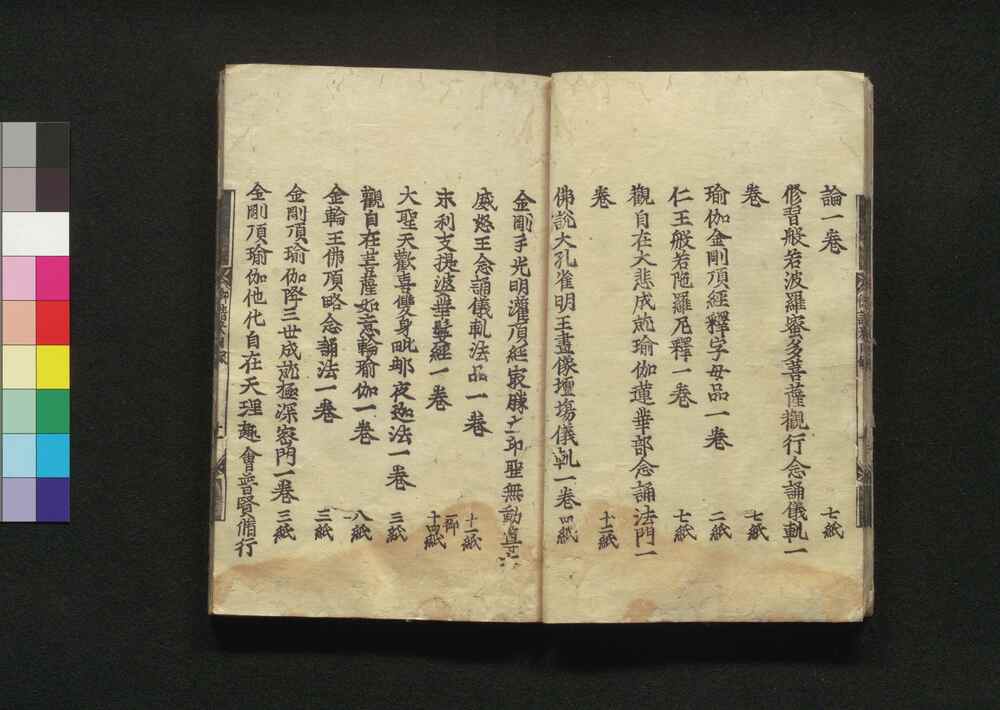 論一卷 七紙
修習般若波羅蜜多菩薩觀行念誦儀軌一
卷 七紙
瑜伽金剛頂經釋字母品一卷 二紙
仁王般若陁羅尼釋一卷 七紙
觀自在大悲成就瑜伽蓮華部念誦法門一
卷 十二紙
佛說大孔雀明王畫像壇場儀軌一卷 四紙
金剛手光明灌頂經最勝立印聖無動尊大
威怒王念誦儀軌法品一卷 十一紙
末利支提婆華鬘經一卷 十四紙
大聖天歡喜雙身毗那夜迦法一卷 三紙
觀自在菩薩如意輪瑜伽一卷 八紙
金輪王佛頂略念誦法一卷 三紙
金剛頂瑜伽降三世成就極深密門一卷 三紙
金剛頂瑜伽他化自在天理趣會普賢脩行